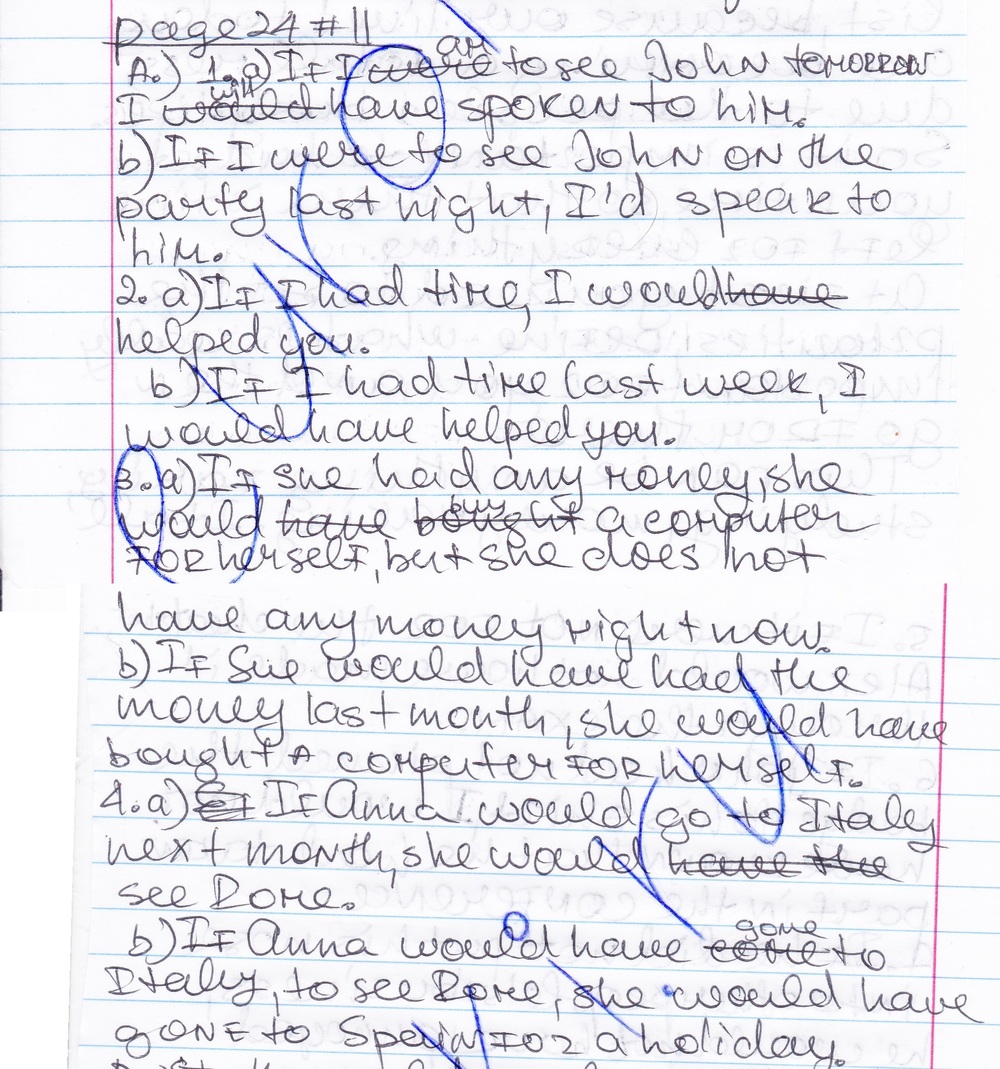 page 24 # 11
A.) 1. a) If I were am to see John tomorrow
I would will have spoken to him.
b) If I were to see John on the
party last night, I'd speak to
him.
2. a) If I had time, I would have
helped you.
b) If I had time last week, I
would have helped you.
3. a) If she had any money, she
would have bought buy a computer
for herself, but she does not
have any money right now.
b) If she would have had the
money last month, she would have
bought a computer for herself.
4. a) If Anna would go to Italy
next month, she would have the
see Rome.
b) If Anna would have come gone to
Italy, to see Rome, she would have
gone to Spain for a holiday.